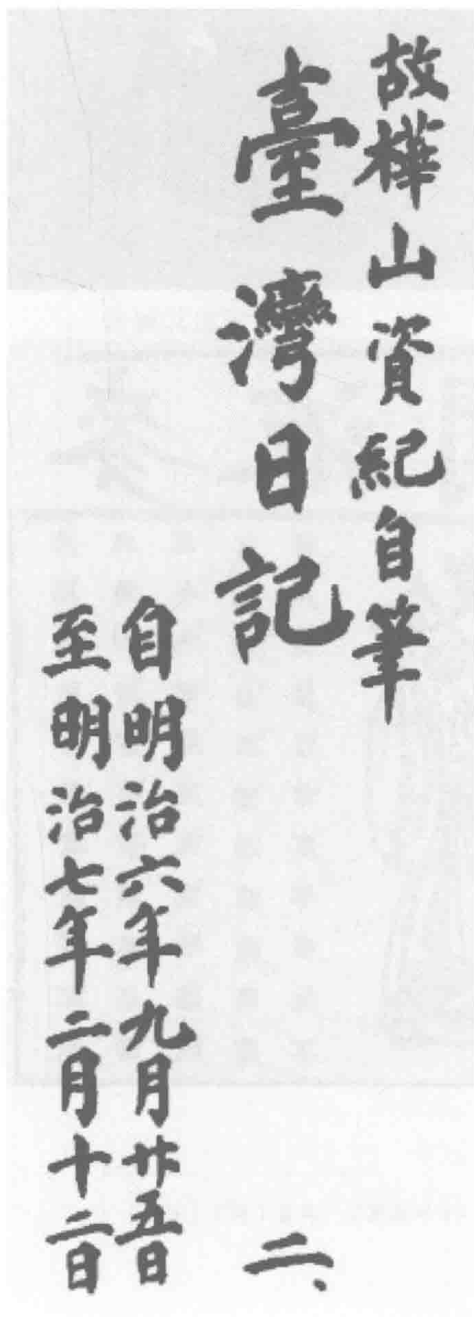 故樺山資紀自筆
臺灣日記 二、
自明治六年九月廿五日
至明治七年二月十二日